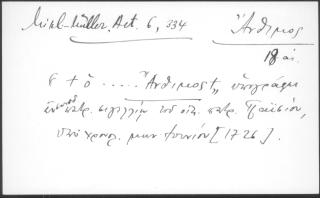 Mikl-Müller, Act. 6, 334
Ἄνθιμος
18 αἰ.
" + ὁ ..... Ἄνθιμος", ὑπογράφει
πατρ. σιγιλλίῳ τοῦ οἰκ. πατρ. Παϊσίου,
ὑπὸ χρονολ. μην Ἰουνίῳ [1726].